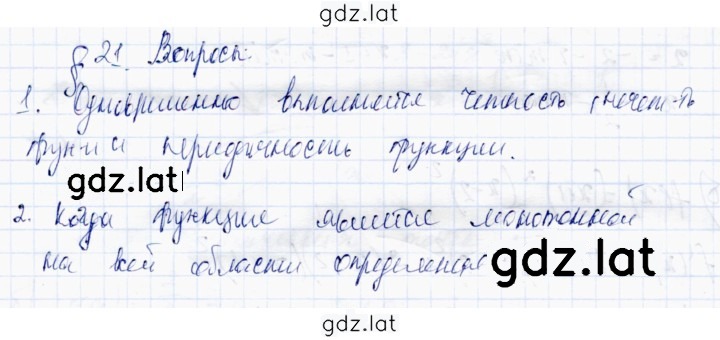 gdz.lat
§ 21. Вопросы
1. Одновременно выполняется четность (нечет-ть
функ-и и периодичность функции.
gdz.lat
2. Когда функция является монотонной
на всей области определения
gdz.lat
gdz.lat